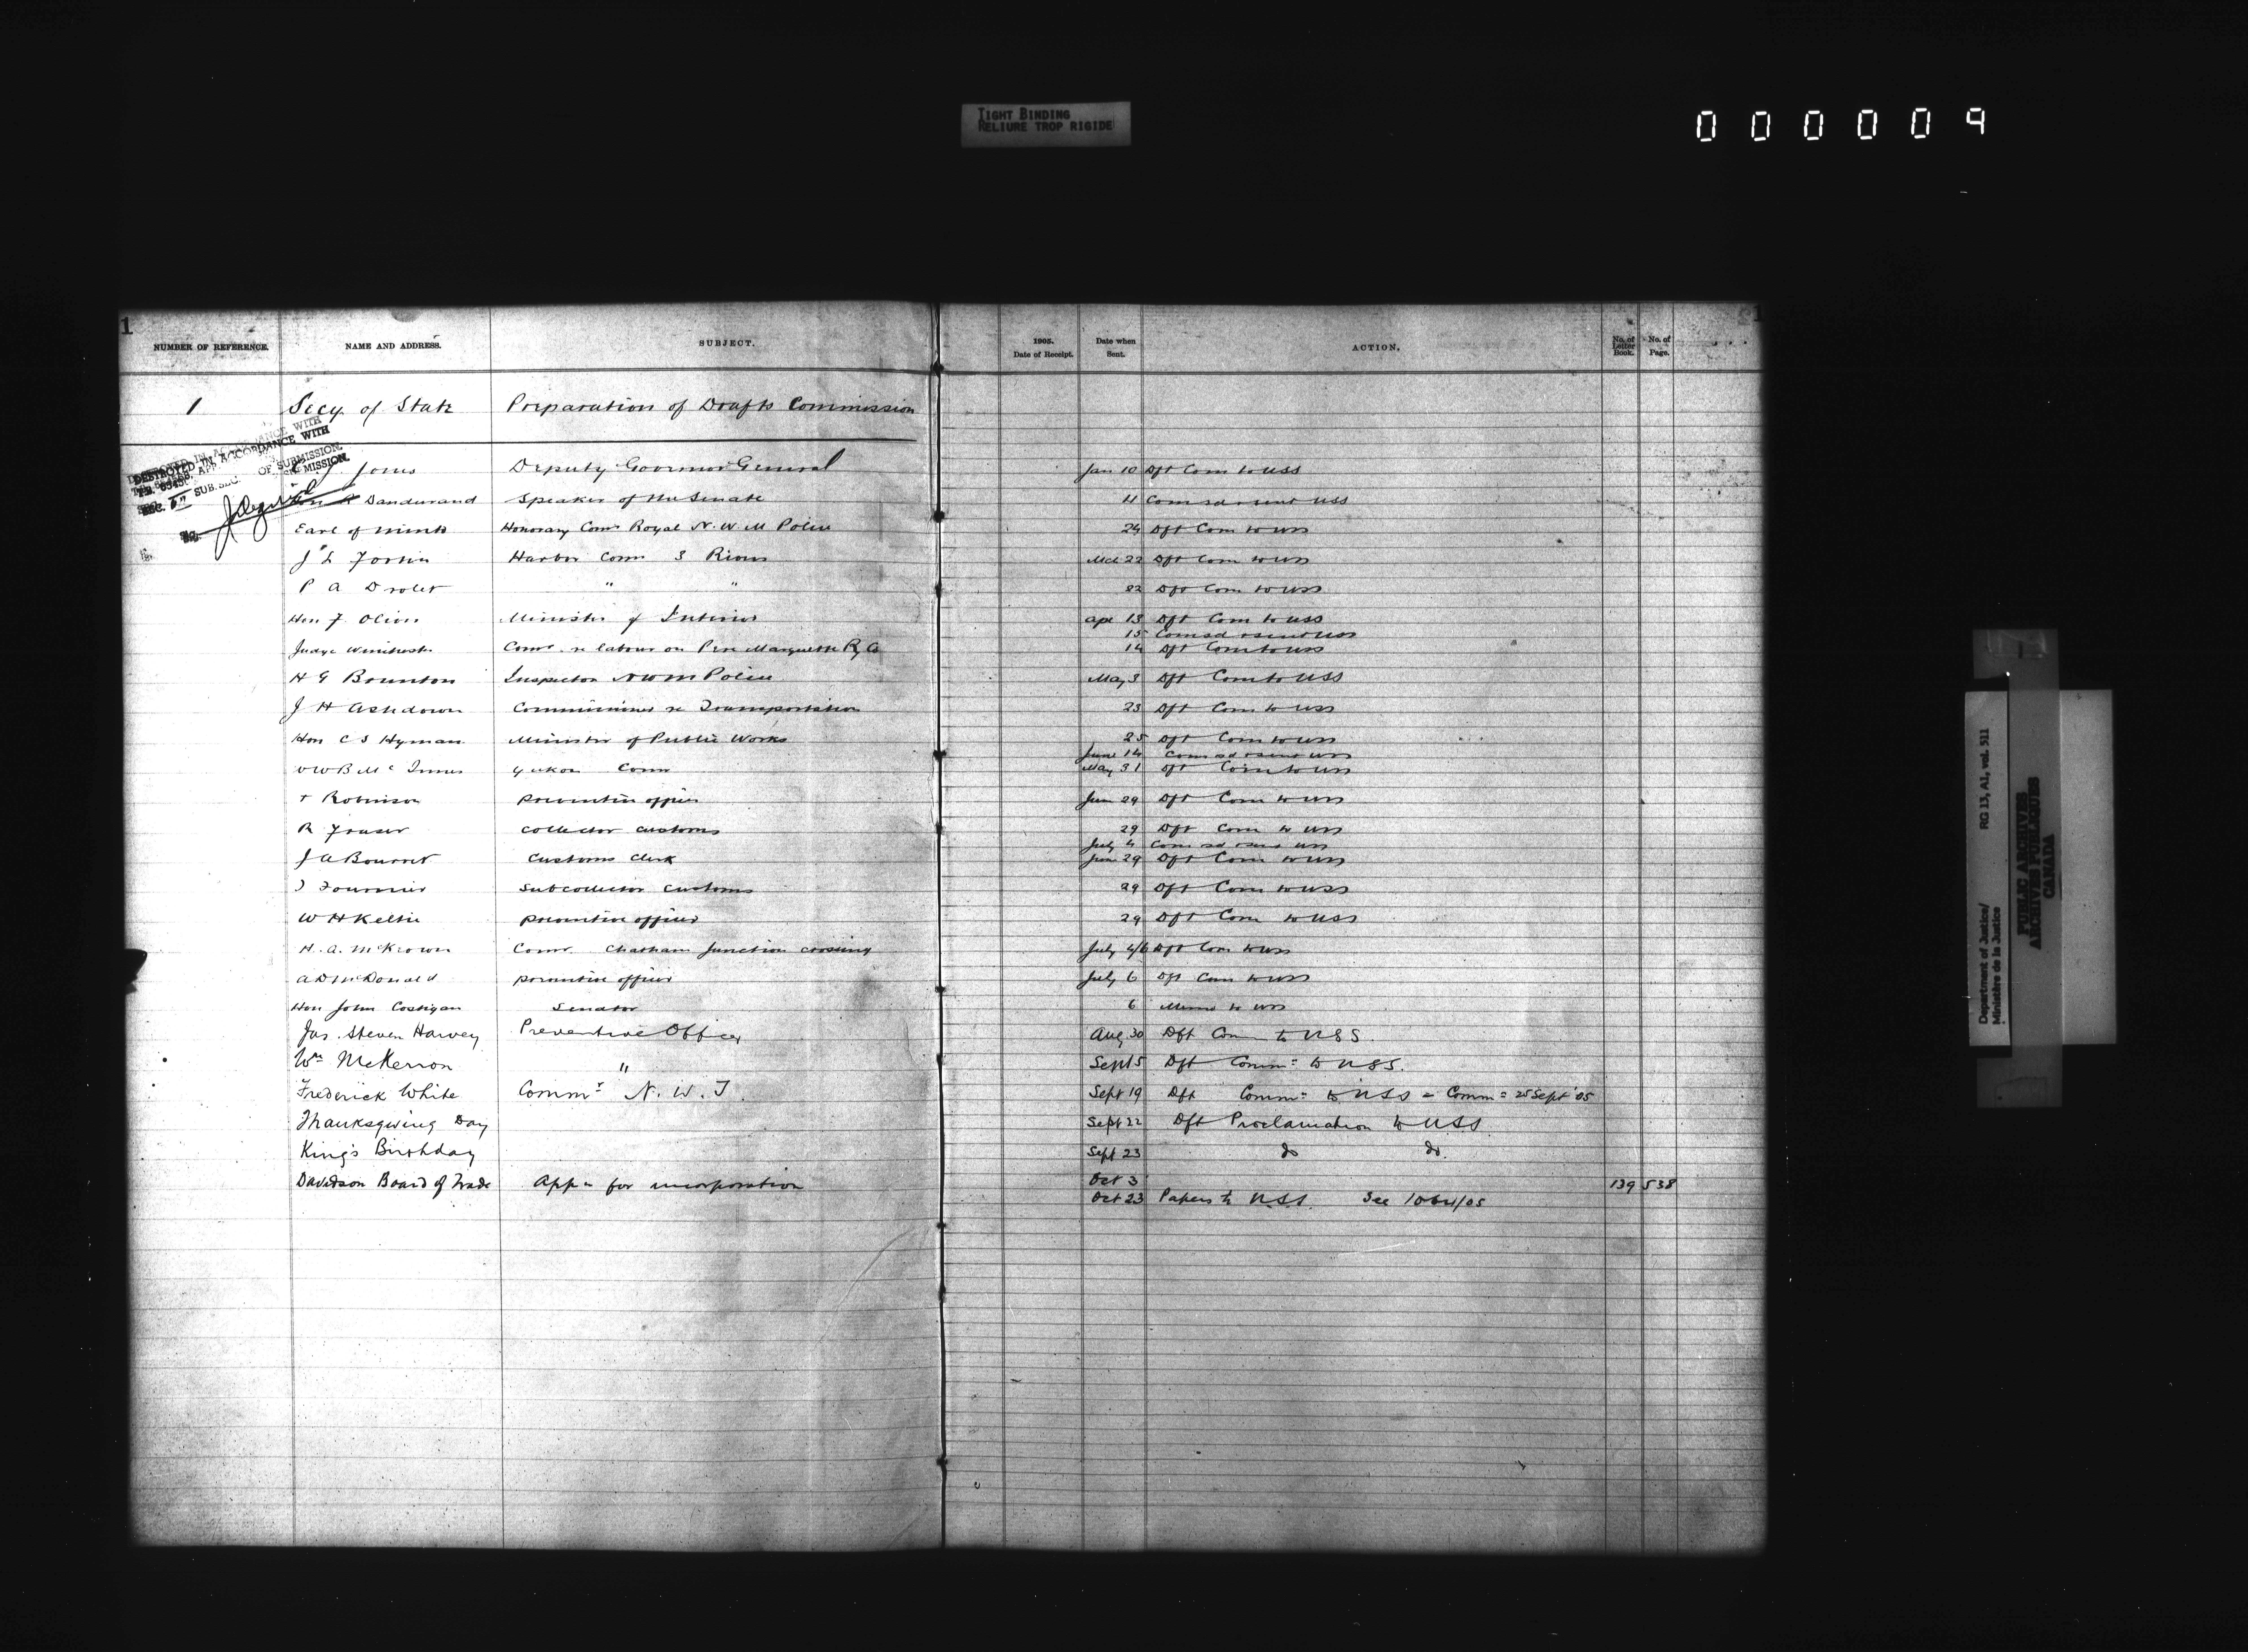 TIGHT BINDING
RELIURE TROP RIGIDE
000009
1
NUMBER OF REFERENCE. NAME AND ADDRESS. SUBJECT. 1905. Date of Receipt. Date when Sent. ACTION. No. of Letter Book. No. of Page.
1 Secy of State Preparation of Drafts Commission
DESTROYED IN ACCORDANCE WITH
OF SUBMISSION.
Jones Deputy Governor General Jan 10 Dft Com to USS
Dandurand Speaker of the Senate 11 Com sd & sent USS
Earl of Minto Honorary Comr Royal N. W. M Police 24 Dft Com to USS
J L Fortin Harbor Comr 3 Rivers Mch 22 Dft Com to USS
P A Drolet " " 22 Dft Com to USS
Hon F. Oliver Minister of Interior Apr 13 Dft Com to USS
15 Com sd & sent USS
Judge Winchester Comr re labour on Pere Marquette Ry Co 14 Dft Com to USS
H G Brunton Inspector NWM Police May 3 Dft Com to USS
J H Ashdown Commissioner re Transportation 23 Dft Com to USS
Hon C S Hyman Minister of Public Works 25 Dft Com to USS
June 14 Com sd & sent USS
W W B McInnes Yukon Comr May 31 Dft Com to USS
Robinson preventive officer June 29 Dft Com to USS
R Fraser collector customs 29 Dft Com to USS
July 4 Com sd & sent USS
J A Bourret Customs Clerk June 29 Dft Com to USS
Fournier Subcollector customs 29 Dft Com to USS
W H Keltie preventive officer 29 Dft Com to USS
H. A. McKeown Comr. Chatham Junction crossing July 4/6 Dft Com to USS
A D McDonald preventive officer July 6 Dft Com to USS
Hon John Costigan Senator 6 Memo to USS
Jas. Steven Harvey Preventive Officer Aug 30 Dft Com to USS.
Wm McKerron " Sept 5 Dft Comm= to USS.
Frederick White Commr N. W. T. Sept 19 Dft Comm= to USS = Comm= 25 Sept '05
Thanksgiving Day Sept 22 Dft Proclamation to USS
King's Birthday Sept 23 do do.
Davidson Board of Trade App= for incorporation Oct 3 139 538
Oct 23 Papers to USS. See 1064/05
Department of Justice/ RG 13, A1, vol. 511
Ministère de la Justice
PUBLIC ARCHIVES
ARCHIVES PUBLIQUES
CANADA